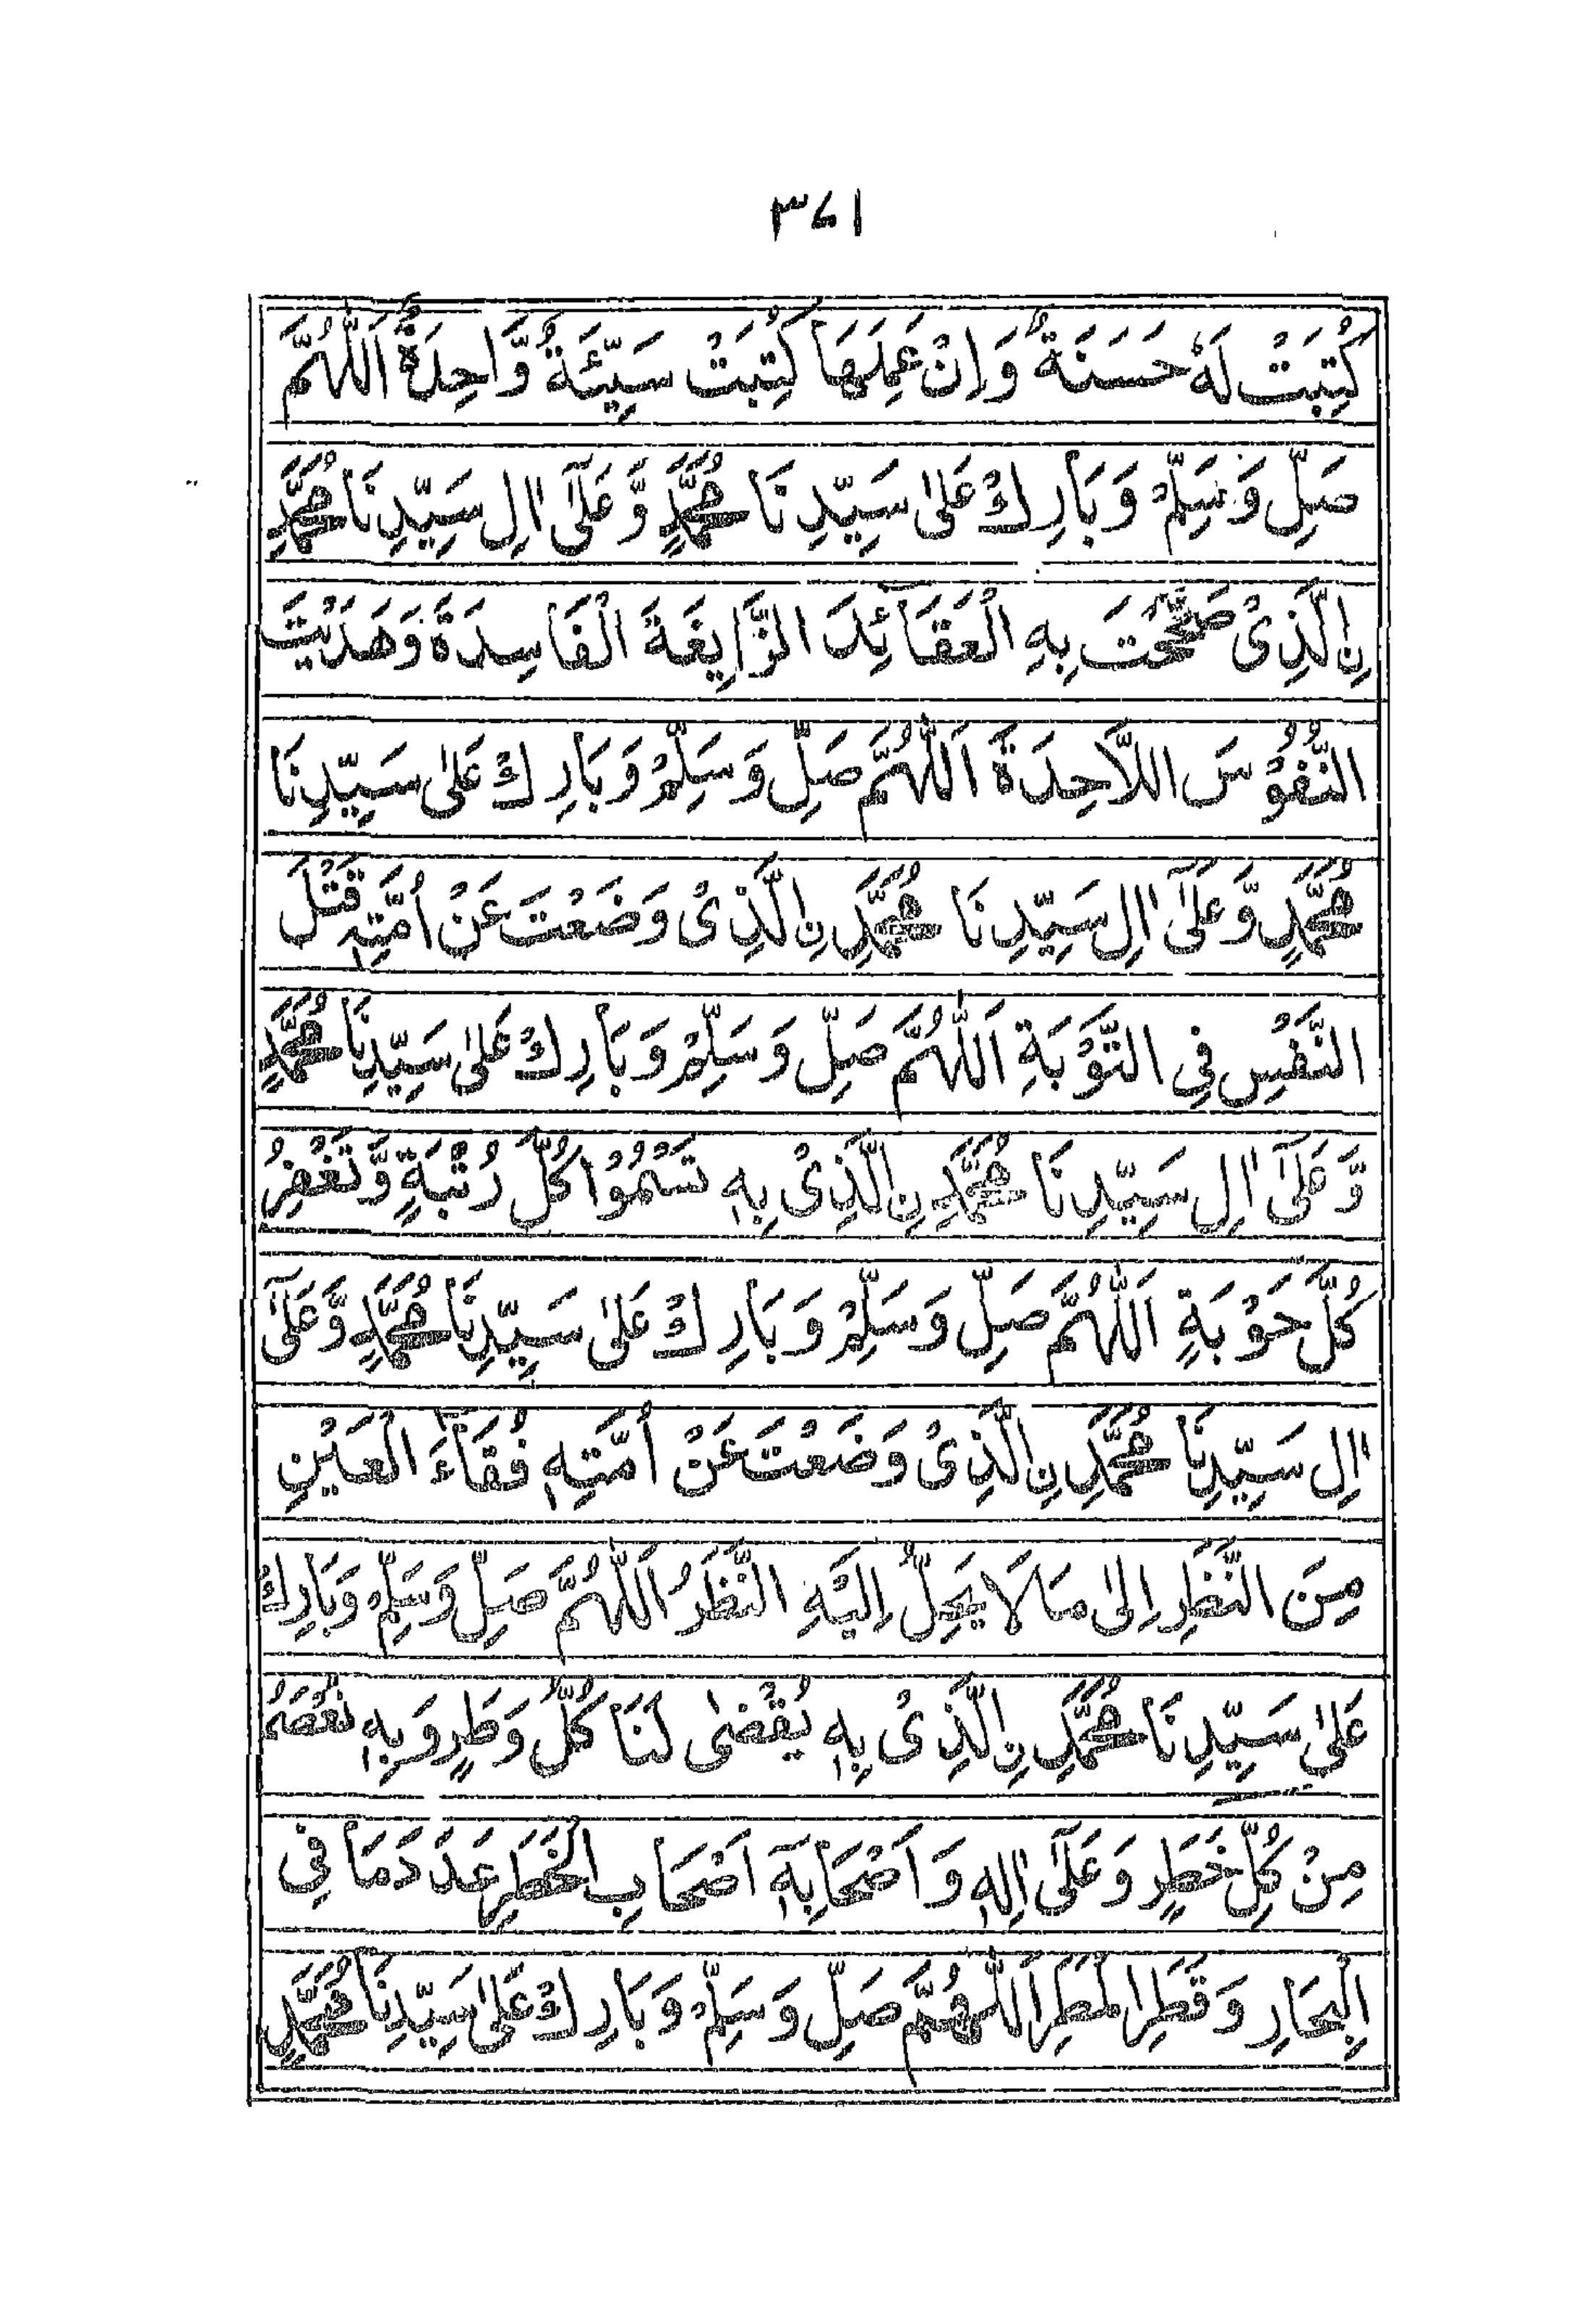 ۳۷۱
كُتِبَتْ لَهٗ حَسَنَةٌ وَاِنْ عَمِلَهَا كُتِبَتْ سَيِّئَةٌ وَّاحِدَةٌ اَللّٰهُمَّ
صَلِّ وَسَلِّمْ وَبَارِكْ عَلٰى سَيِّدِنَا مُحَمَّدٍ وَّعَلٰٓى اٰلِ سَيِّدِنَا مُحَمَّدِ
نِ الَّذِىْ صَحَّحْتَ بِهِ الْعَقَآئِدَ الزَّايِغَةَ الْفَاسِدَةَ وَهَدَيْتَ
النُّفُوْسَ اللَّاحِدَةَ اَللّٰهُمَّ صَلِّ وَسَلِّمْ وَبَارِكْ عَلٰى سَيِّدِنَا
مُحَمَّدٍ وَّعَلٰٓى اٰلِ سَيِّدِنَا مُحَمَّدِ نِ الَّذِىْ وَضَعْتَ عَنْ اُمَّتِهٖ قَتْلَ
النَّفْسِ فِى التَّوْبَةِ اَللّٰهُمَّ صَلِّ وَسَلِّمْ وَبَارِكْ عَلٰى سَيِّدِنَا مُحَمَّدٍ
وَّعَلٰٓى اٰلِ سَيِّدِنَا مُحَمَّدِ نِ الَّذِىْ بِهٖ تَسْمُوْا كُلَّ رُتْبَةٍ وَّتَغْفِرُ
كُلَّ حَوْبَةٍ اَللّٰهُمَّ صَلِّ وَسَلِّمْ وَبَارِكْ عَلٰى سَيِّدِنَا مُحَمَّدٍ وَّعَلٰٓى
اٰلِ سَيِّدِنَا مُحَمَّدِ نِ الَّذِىْ وَضَعْتَ عَنْ اُمَّتِهٖ فُقَآءَ الْعَيْنِ
مِنَ النَّظَرِ اِلٰى مَا لَا يَحِلُّ اِلَيْهِ النَّظَرُ اَللّٰهُمَّ صَلِّ وَسَلِّمْ وَبَارِكْ
عَلٰى سَيِّدِنَا مُحَمَّدِ نِ الَّذِىْ بِهٖ يُقْضٰى لَنَا كُلُّ وَطَرٍ وَبِهٖ نُعْصَمُ
مِنْ كُلِّ خَطَرٍ وَعَلٰٓى اٰلِهٖ وَاَصْحَابِهٖٓ اَصْحَابِ الْخَطَرِ عَدَدَ مَا فِى
الْبِحَارِ وَقَطَرِ الْمَطَرِ اَللّٰهُمَّ صَلِّ وَسَلِّمْ وَبَارِكْ عَلٰى سَيِّدِنَا مُحَمَّدٍ